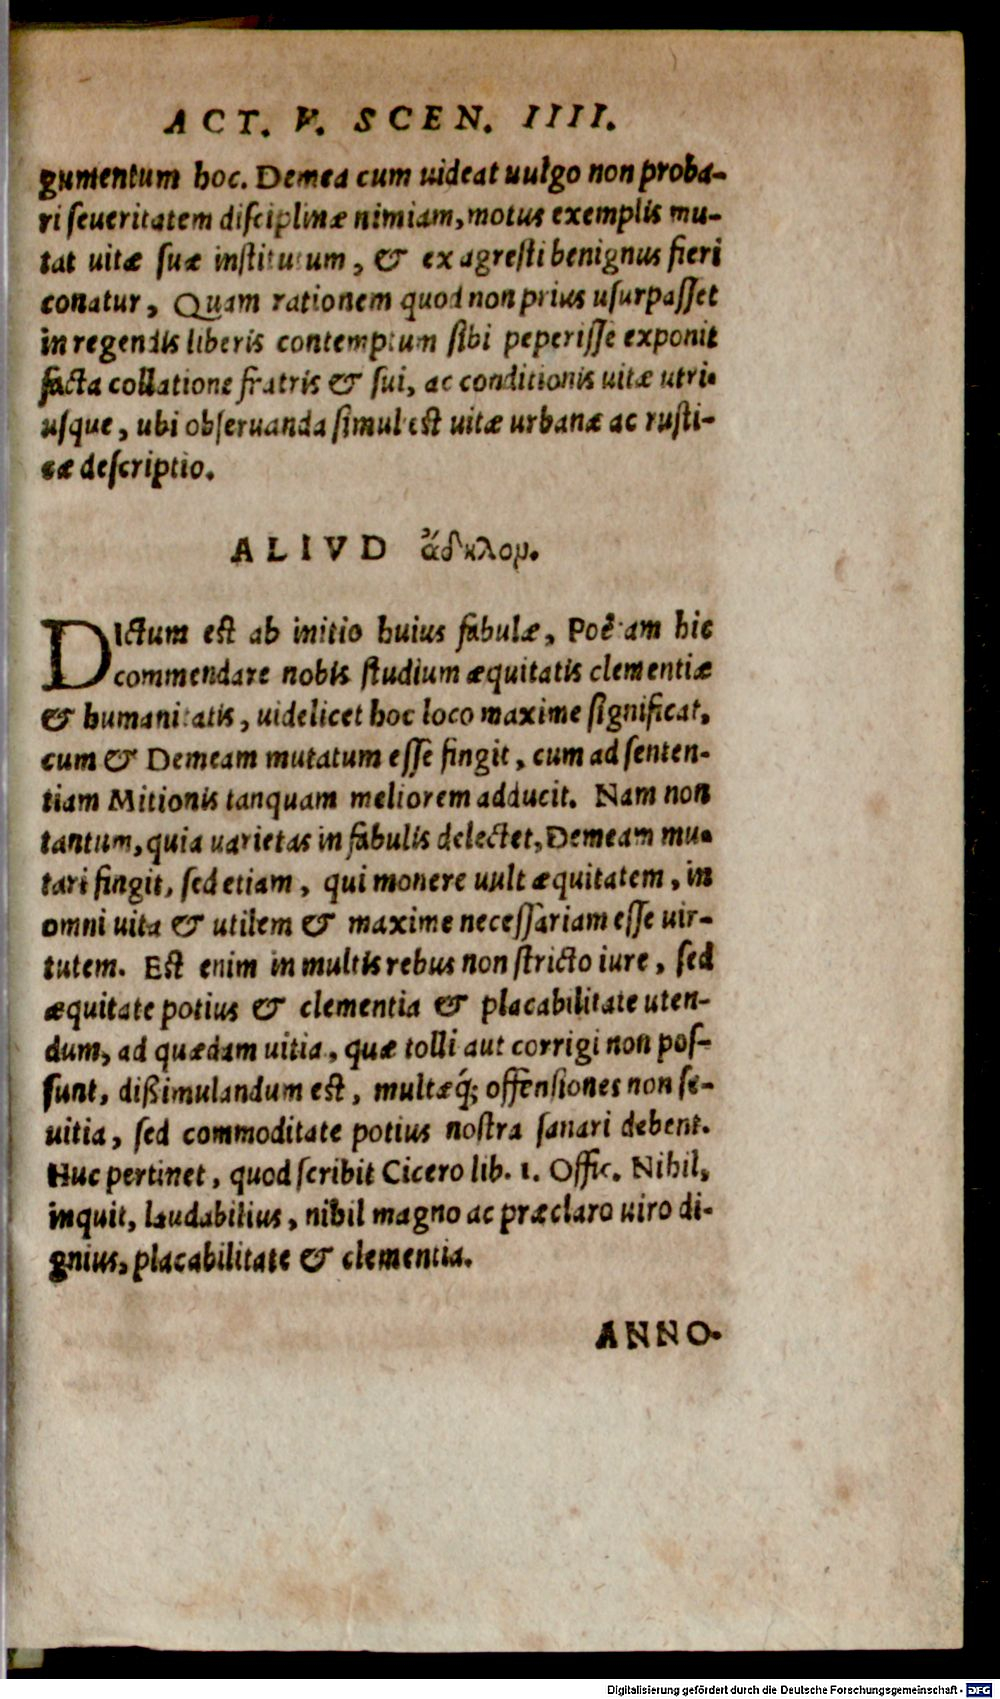 ACT. V. SCEN. IIII.
gumentum hoc. Demea cum uideat uulgo non proba-
ri seueritatem disciplinæ nimiam, motus exemplis mu-
tat uitæ suæ institutum, & ex agresti benignus fieri
conatur, Quam rationem quod non prius usurpasset
in regendis liberis contemptum sibi peperisse exponit
facta collatione fratris & sui, ac conditionis uitæ utri-
usque, ubi obseruanda simul est uitæ urbanæ ac rusti-
cæ descriptio.
ALIVD ἄδηλομ.
DIctum est ab initio huius fabulæ, Poëtam hic
commendare nobis studium æquitatis clementiæ
& humanitatis, uidelicet hoc loco maxime significat,
cum & Demeam mutatum esse fingit, cum ad senten-
tiam Mitionis tanquam meliorem adducit. Nam non
tantum, quia uarietas in fabulis delectet, Demeam mu-
tari fingit, sed etiam, qui monere uult æquitatem, in
omni uita & utilem & maxime necessariam esse uir-
tutem. Est enim in multis rebus non stricto iure, sed
æquitate potius & clementia & placabilitate uten-
dum, ad quædam uitia, quæ tolli aut corrigi non pos-
sunt, dißimulandum est, multæq́; offensiones non se-
uitia, sed commoditate potius nostra sanari debent.
Huc pertinet, quod scribit Cicero lib. 1. Offic. Nihil,
inquit, laudabilius, nihil magno ac præclaro uiro di-
gnius, placabilitate & clementia.
ANNO-
Digitalisierung gefördert durch die Deutsche Forschungsgemeinschaft - DFG